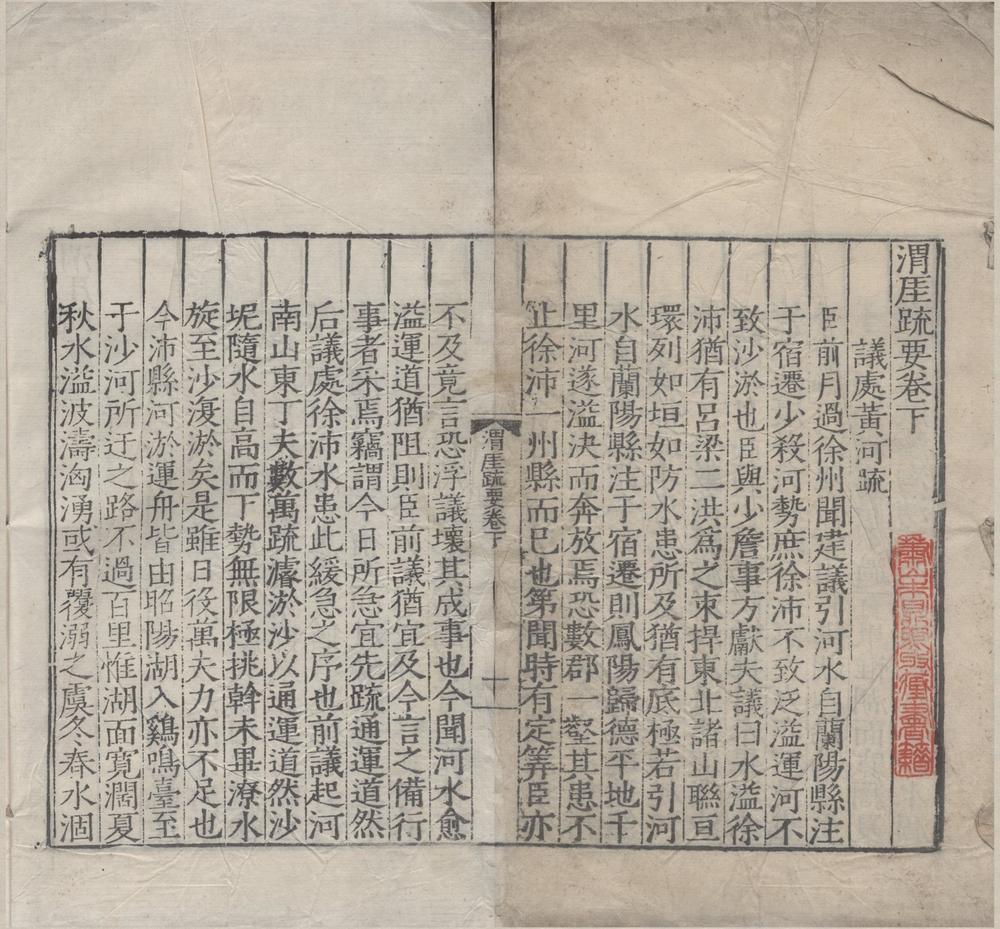 渭厓疏要卷下
議處黃河疏
臣前月過徐州聞建議引河水自蘭陽縣注
于宿遷少殺河勢庶徐沛不致泛溢運河不
致沙淤也臣與少詹事方獻夫議曰水溢徐
沛猶有呂梁二洪爲之束捍東北諸山聯亘
環列如垣如防水患所及猶有底極若引河
水自蘭陽縣注于宿遷則鳳陽歸德平地千
里河遂溢決而奔放焉恐數郡一壑其患不
止徐沛一州縣而已也第聞時有定筭臣亦
渭厓疏要卷下
一
不及竟言恐浮議壞其成事也今聞河水愈
溢運道猶阻則臣前議猶宜及今言之備行
事者采焉竊謂今日所急宜先疏通運道然
后議處徐沛水患此緩急之序也前議起河
南山東丁夫數萬疏濬淤沙以通運道然沙
坭隨水自高而下勢無限極挑幹未畢潦水
旋至沙復淤矣是雖日役萬夫力亦不足也
今沛縣河淤運舟皆由昭陽湖入鷄鳴臺至
于沙河所迂之路不過百里惟湖面寬濶夏
秋水溢波濤洶湧或有覆溺之虞冬春水涸